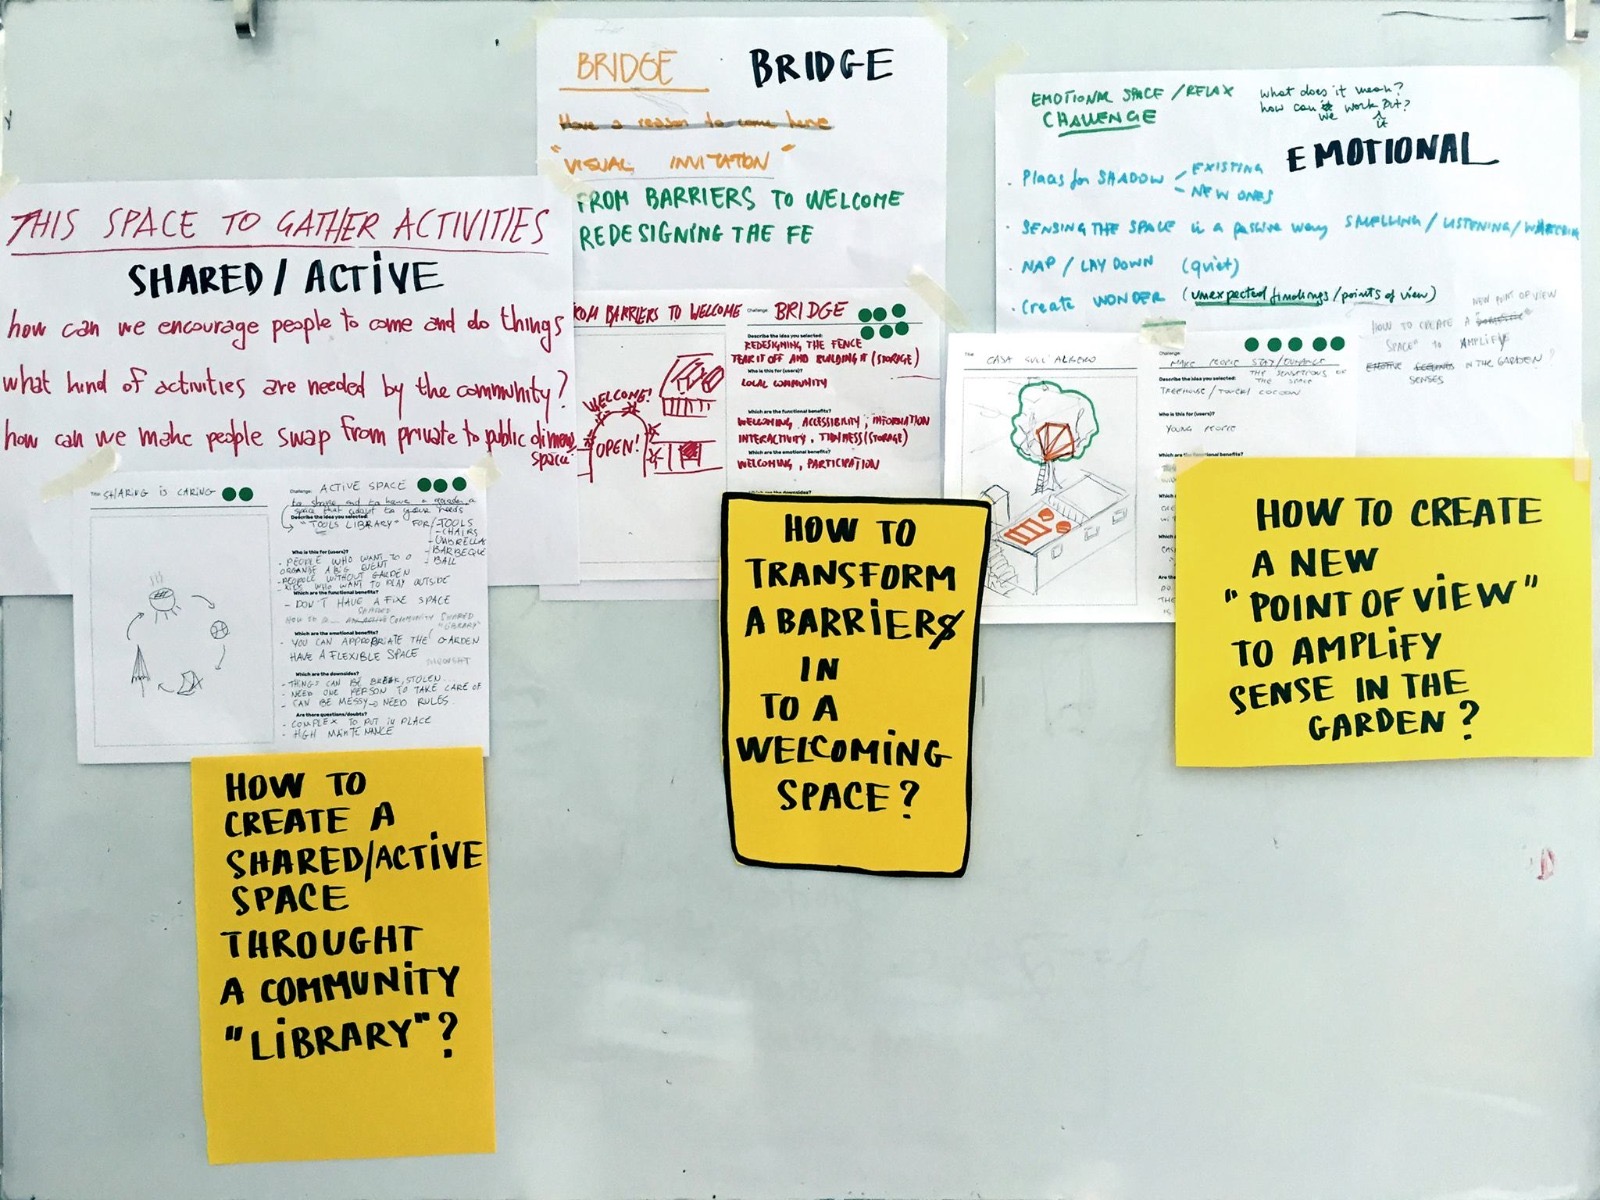 THIS SPACE TO GATHER ACTIVITIES
SHARED / ACTIVE
how can we encourage people to come and do things
what kind of activities are needed by the community?
how can we make people swap from private to public dimens
space
Title SHARING IS CARING
Challenge: ACTIVE SPACE
to share and to have a
space that adapt to your needs
Describe the idea you selected:
"TOOLS LIBRARY" FOR TOOLS
- CHAIRS
- UMBRELLA
- BARBEQUE
- BALL
Who is this for (users)?
- PEOPLE WHO WANT TO
ORGANIZE A BIG EVENT
- PEOPLE WITHOUT GARDEN
- KIDS WHO WANT TO PLAY OUTSIDE
Which are the functional benefits?
- DON'T HAVE A FIXE SPACE
HOW TO COMMUNITY SHARED
"LIBRARY"
Which are the emotional benefits?
- YOU CAN APPROPRIATE THE GARDEN
HAVE A FLEXIBLE SPACE
Which are the downsides?
- THINGS CAN BE BREAK, STOLEN...
- NEED ONE PERSON TO TAKE CARE OF
- CAN BE MESSY → NEED RULES
Are there questions/doubts?
- COMPLEX TO PUT IN PLACE
- HIGH MAINTENANCE
HOW TO
CREATE A
SHARED/ACTIVE
SPACE
THROUGHT
A COMMUNITY
"LIBRARY"?
BRIDGE BRIDGE
Have a reason to come here
"VISUAL INVITATION"
FROM BARRIERS TO WELCOME
REDESIGNING THE FE
FROM BARRIERS TO WELCOME
Challenge: BRIDGE
Describe the idea you selected:
REDESIGNING THE FENCE
TEAR IT OFF AND BUILDING IT (STORAGE)
Who is this for (users)?
LOCAL COMMUNITY
Which are the functional benefits?
WELCOMING, ACCESSIBILITY, INFORMATION
INTERACTIVITY, TIDINESS (STORAGE)
Which are the emotional benefits?
WELCOMING, PARTICIPATION
Which are the downsides?
WELCOME!
OPEN!
HOW TO
TRANSFORM
A BARRIERS
IN
TO A
WELCOMING
SPACE?
EMOTIONAL SPACE / RELAX
CHALLENGE
what does it mean?
how can we work it out?
EMOTIONAL
. Places for SHADOW - EXISTING
- NEW ONES
. SENSING THE SPACE in a passive way SMELLING / LISTENING / WATCHIN
. NAP / LAY DOWN (quiet)
. Create WONDER (unexpected findings / points of view)
NEW POINT OF VIEW
HOW TO CREATE A
SPACE" TO AMPLIFY
IN THE GARDEN?
SENSES
Title CASA SULL'ALBERO
Challenge: MAKE PEOPLE STAY/
THE SENSATIONS OF
THE SPACE
Describe the idea you selected:
TREEHOUSE / COCOON
Who is this for (users)?
YOUNG PEOPLE
HOW TO CREATE
A NEW
"POINT OF VIEW"
TO AMPLIFY
SENSE IN THE
GARDEN?